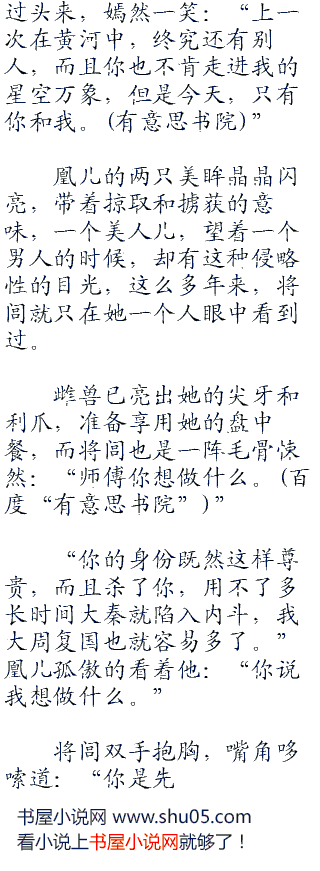 过头来，嫣然一笑：“上一
次在黄河中，终究还有别
人，而且你也不肯走进我的
星空万象，但是今天，只有
你和我。(有意思书院)”
凰儿的两只美眸晶晶闪
亮，带着掠取和掳获的意
味，一个美人儿，望着一个
男人的时候，却有这种侵略
性的目光，这么多年来，将
闾就只在她一个人眼中看到
过。
雌兽已亮出她的尖牙和
利爪，准备享用她的盘中
餐，而将闾也是一阵毛骨悚
然：“师傅你想做什么。(百
度“有意思书院”)”
“你的身份既然这样尊
贵，而且杀了你，用不了多
长时间大秦就陷入内斗，我
大周复国也就容易多了。”
凰儿孤傲的看着他：“你说
我想做什么。”
将闾双手抱胸，嘴角哆
嗦道：“你是先
书屋小说网 www.shu05.com
看小说上书屋小说网就够了！